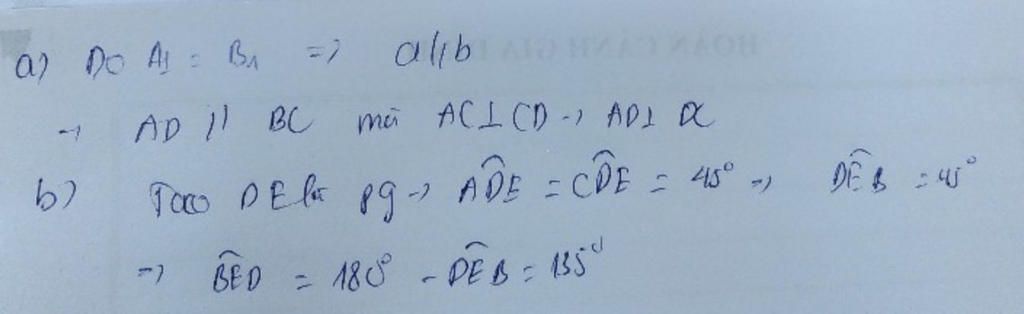 a) Do A1 = B1 => a//b
→ AD // BC mà AC⊥CD → AD⊥DC
b) Taco DE là pg → ADE = CDE = 45° => DEB = 45°
=> BED = 180° - DEB = 135°